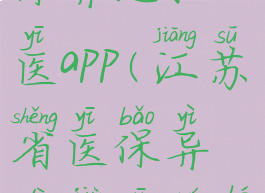 yī jiāng sū
医app(江苏
shěng yī bǎo yì
省医保异